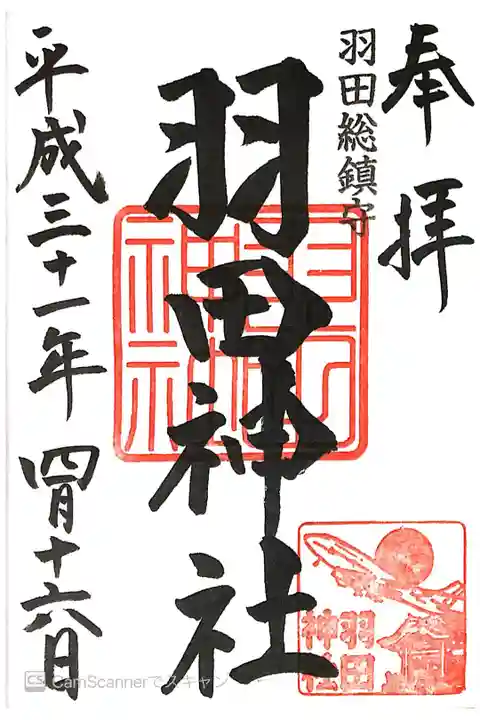 奉拝
羽田総鎮守
羽田神社
羽田神社
平成三十一年 四月十六日
羽田
神社
CS CamScannerでスキャン